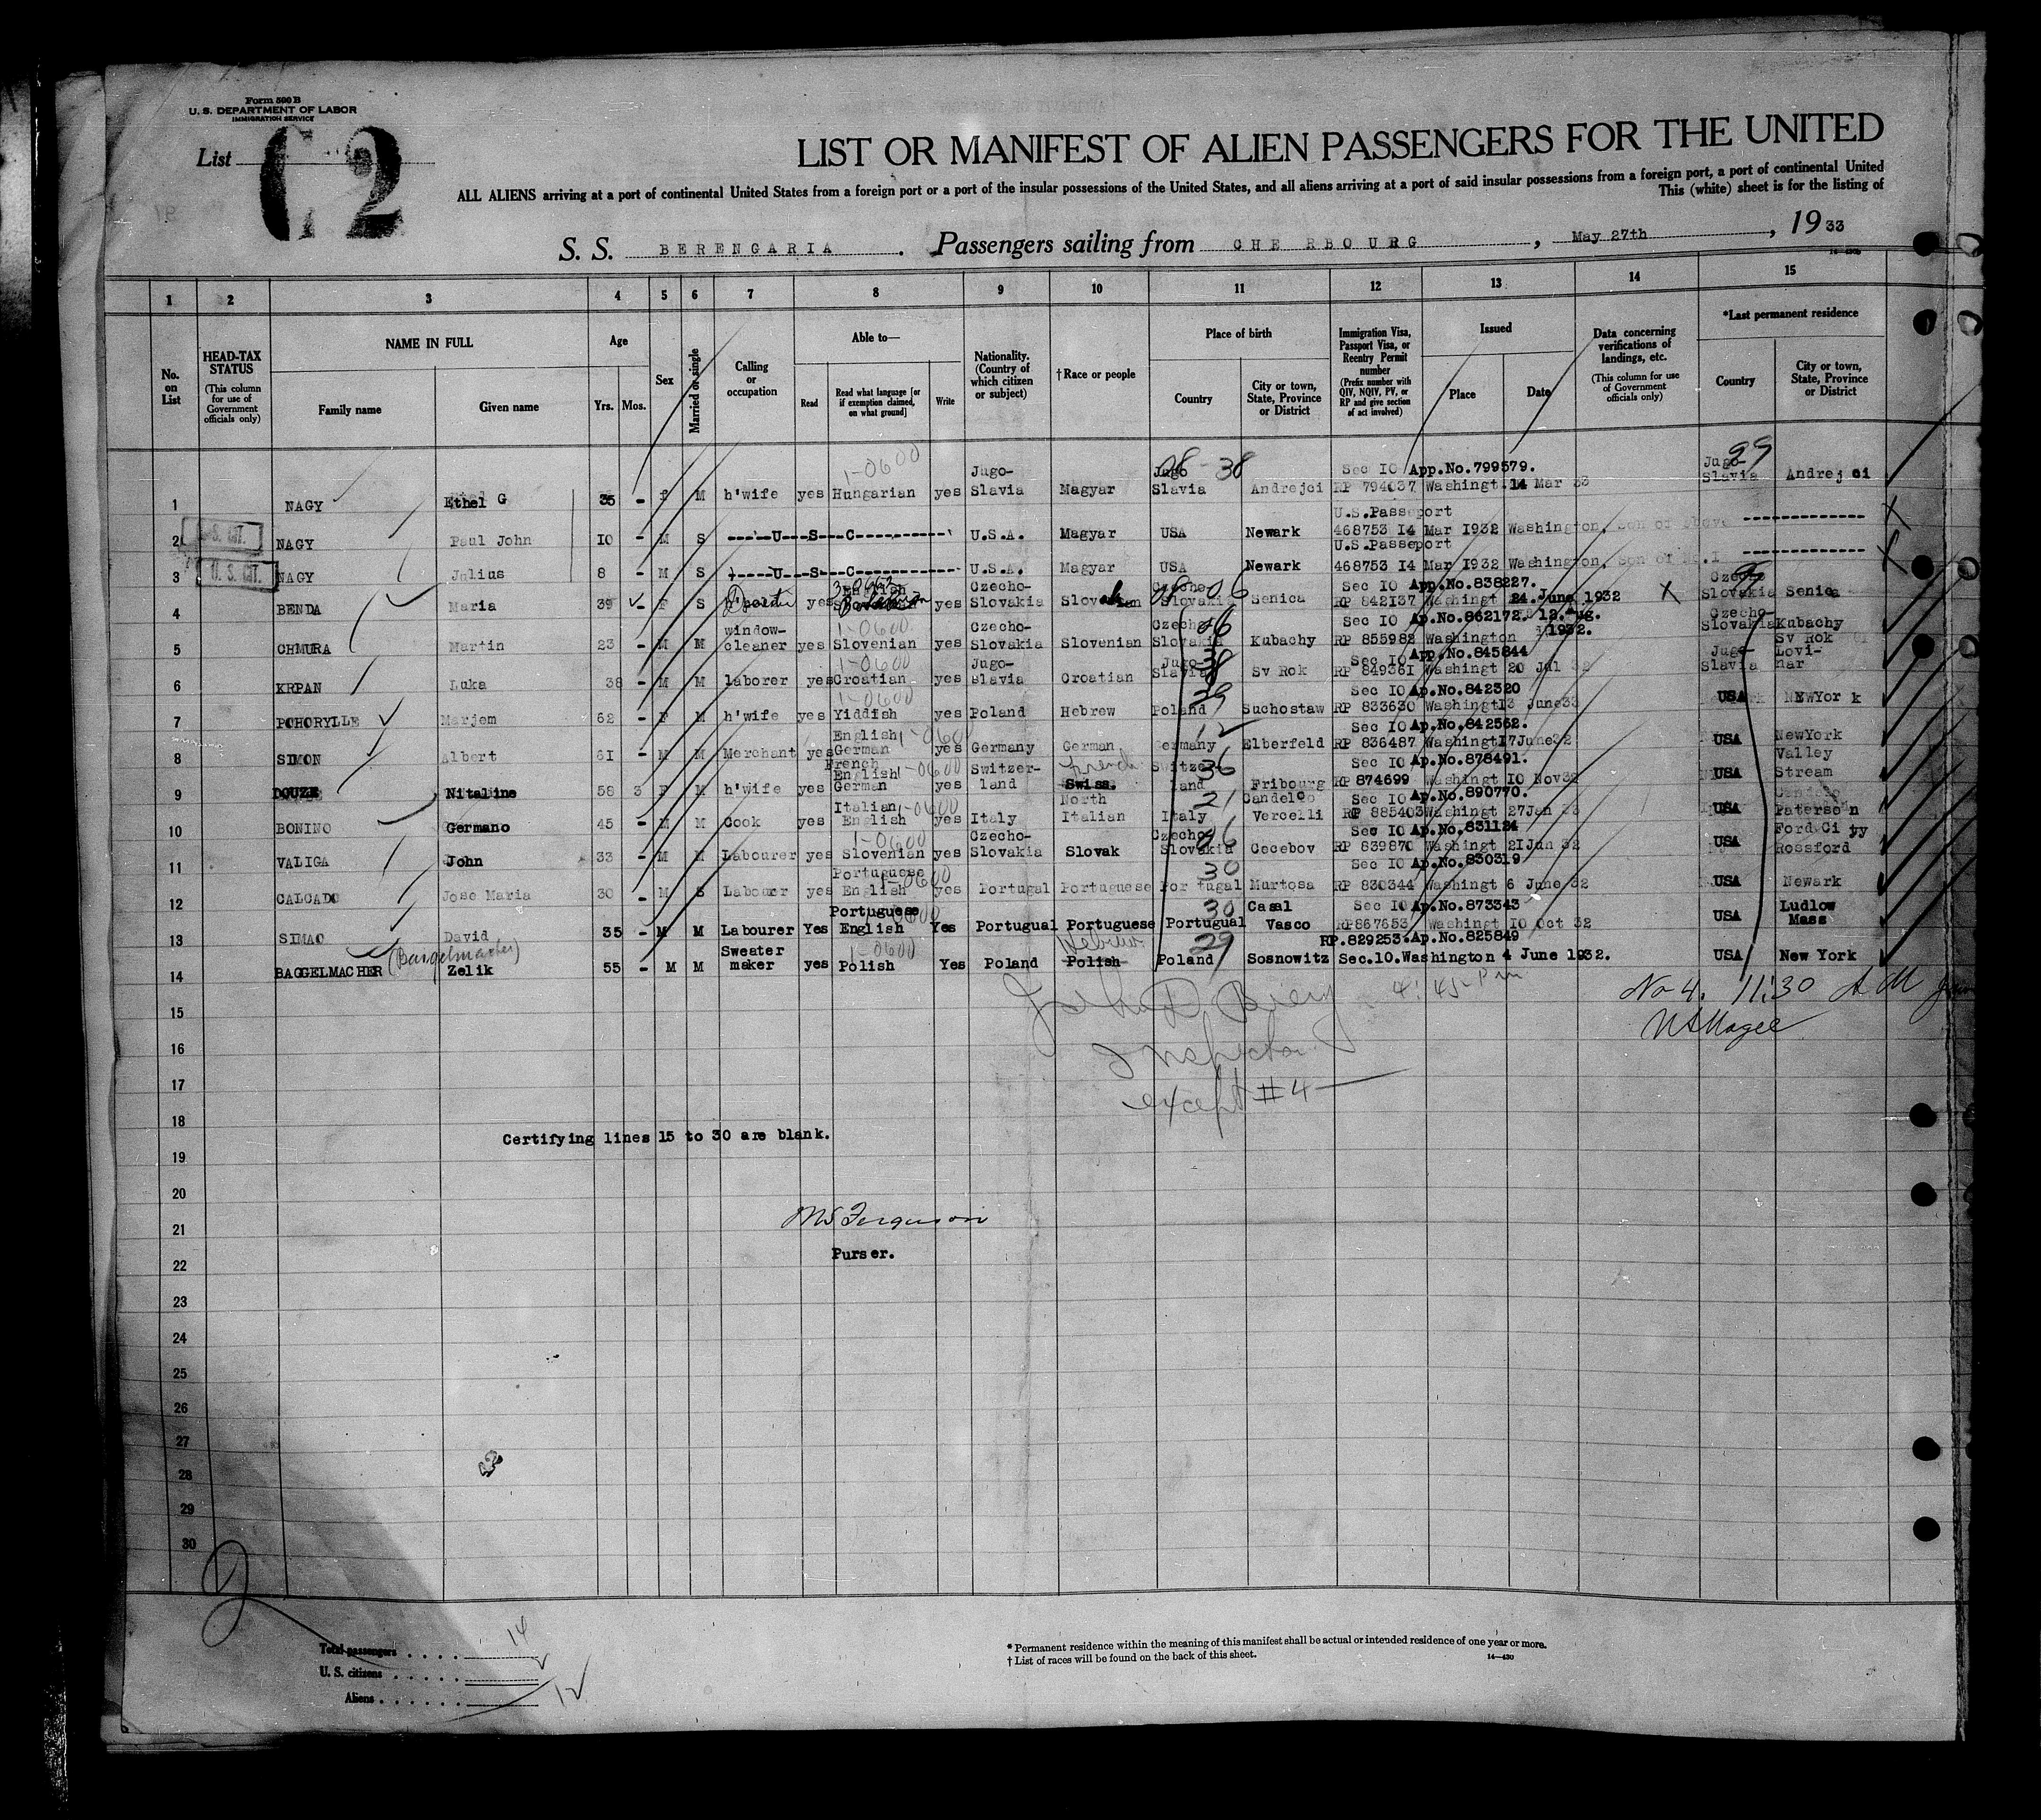 Form 500 B
U. S. DEPARTMENT OF LABOR
IMMIGRATION SERVICE
List C 2
LIST OR MANIFEST OF ALIEN PASSENGERS FOR THE UNITED
ALL ALIENS arriving at a port of continental United States from a foreign port or a port of the insular possessions of the United States, and all aliens arriving at a port of said insular possessions from a foreign port, a port of continental United
This (white) sheet is for the listing of
S. S. BERENGARIA . Passengers sailing from CHERBOURG , May 27th , 19 33
1 2 3 4 5 6 7 8 9 10 11 12 13 14 15
No. on List
HEAD-TAX STATUS (This column for use of Government officials only)
NAME IN FULL Family name Given name
Age Yrs. Mos.
Sex
Married or single
Calling or occupation
Able to— Read Read what language [or if exemption claimed, on what ground] Write
Nationality. (Country of which citizen or subject)
†Race or people
Place of birth Country City or town, State, Province or District
Immigration Visa, Passport Visa, or Reentry Permit number (Prefix number with QIV, NQIV, PV, or RP and give section of act involved)
Issued Place Date
Data concerning verifications of landings, etc. (This column for use of Government officials only)
*Last permanent residence Country City or town, State, Province or District
1 NAGY Ethel G 35 - f M h'wife yes Hungarian yes Jugo-Slavia Magyar Jugo Slavia Andrejci Sec 10 App.No.799579. RP 794037 Washingt 14 Mar 33 Jugo Slavia Andrejci
2 U.S. CIT. NAGY Paul John 10 - M S U--S--C U.S.A. Magyar USA Newark U.S.Passeport 468753 14 Mar 1932 Washington. Son of above
3 U.S. CIT. NAGY Julius 8 - M S U--S--C U.S.A. Magyar USA Newark U.S.Passeport 468753 14 Mar 1932 Washington. Son of No.1
4 BENDA Maria 39 F S yes yes Czecho-Slovakia Czecho Slovakia Senica Sec 10 App.No.838227. RP 842137 Washingt 24 June 1932 X Czecho Slovakia Senica
5 CHMURA Martin 23 - M M window-cleaner yes Slovenian yes Czecho-Slovakia Slovenian Czecho Slovakia Kubachy Sec 10 Ap.No.862172. 12.Aug. RP 855982 Washington 1932. Czecho-Slovakia Kubachy
6 KRPAN Luka 38 - M M laborer yes Croatian yes Jugo-slavia Croatian Jugo-Slavia Sv Rok Sec 10 App.No.845844 RP 849361 Washingt 20 Jul 32 Jugo-Slavia Sv Rok Lovi-nar
7 POHORYLLE Marjem 62 - F M h'wife yes Yiddish yes Poland Hebrew Poland Suchostaw Sec 10 Ap.No.842320 RP 833630 Washingt 13 June 33 USA NEWYork
8 SIMON Albert 61 - M M Merchant yes English German yes Germany German Germany Elberfeld Sec 10 Ap.No.842562. RP 836487 Washingt 17June32 USA NewYork
9 DOUZE Nitaline 58 3 F M h'wife yes French English German yes Switzer-land Swiss. French Switzer-land Fribourg Sec 10 Ap.No.878491. RP 874699 Washingt 10 Nov32 USA Valley Stream
10 BONINO Germano 45 - M M Cook yes Italian English yes Italy North Italian Italy Candelo Vercelli Sec 10 Ap.No.890770. RP 885403 Washingt 27Jan 33 USA Paterson
11 VALIGA John 33 - M M Labourer yes Slovenian yes Czecho-Slovakia Slovak Czecho Slovakia Cecebov Sec 10 Ap.No.831124 RP 839870 Washingt 21Jun 32 USA Ford City Rossford
12 CALCADO Jose Maria 30 - M S Labourer yes Portuguese English yes Portugal Portuguese Portugal Murtosa Sec 10 Ap.No.830319 RP 830344 Washingt 6 June 32 USA Newark
13 SIMAO David 35 - M M Labourer Yes Portuguese English Yes Portugual Portuguese Portugual Casal Vasco Sec 10 Ap.No.873343 RP867653 Washingt 10 Oct 32 USA Ludlow Mass
14 BAGGELMACHER (Baigelmacher) Zelik 55 - M M Sweater maker yes Polish Yes Poland Polish Hebrew Poland Sosnowitz RP.829253.Ap.No.825849 Sec.10.Washington 4 June 1932. USA New York
15
John D
4:45 P m
No 4. 11:30 A M
Inspector
except #4
16
17
18
Certifying lines 15 to 30 are blank.
19
20
21
Ferguson
Purser.
22
23
24
25
26
27
28
29
30
Total passengers 14
U. S. citizens
Aliens 12
* Permanent residence within the meaning of this manifest shall be actual or intended residence of one year or more.
† List of races will be found on the back of this sheet.
14—430